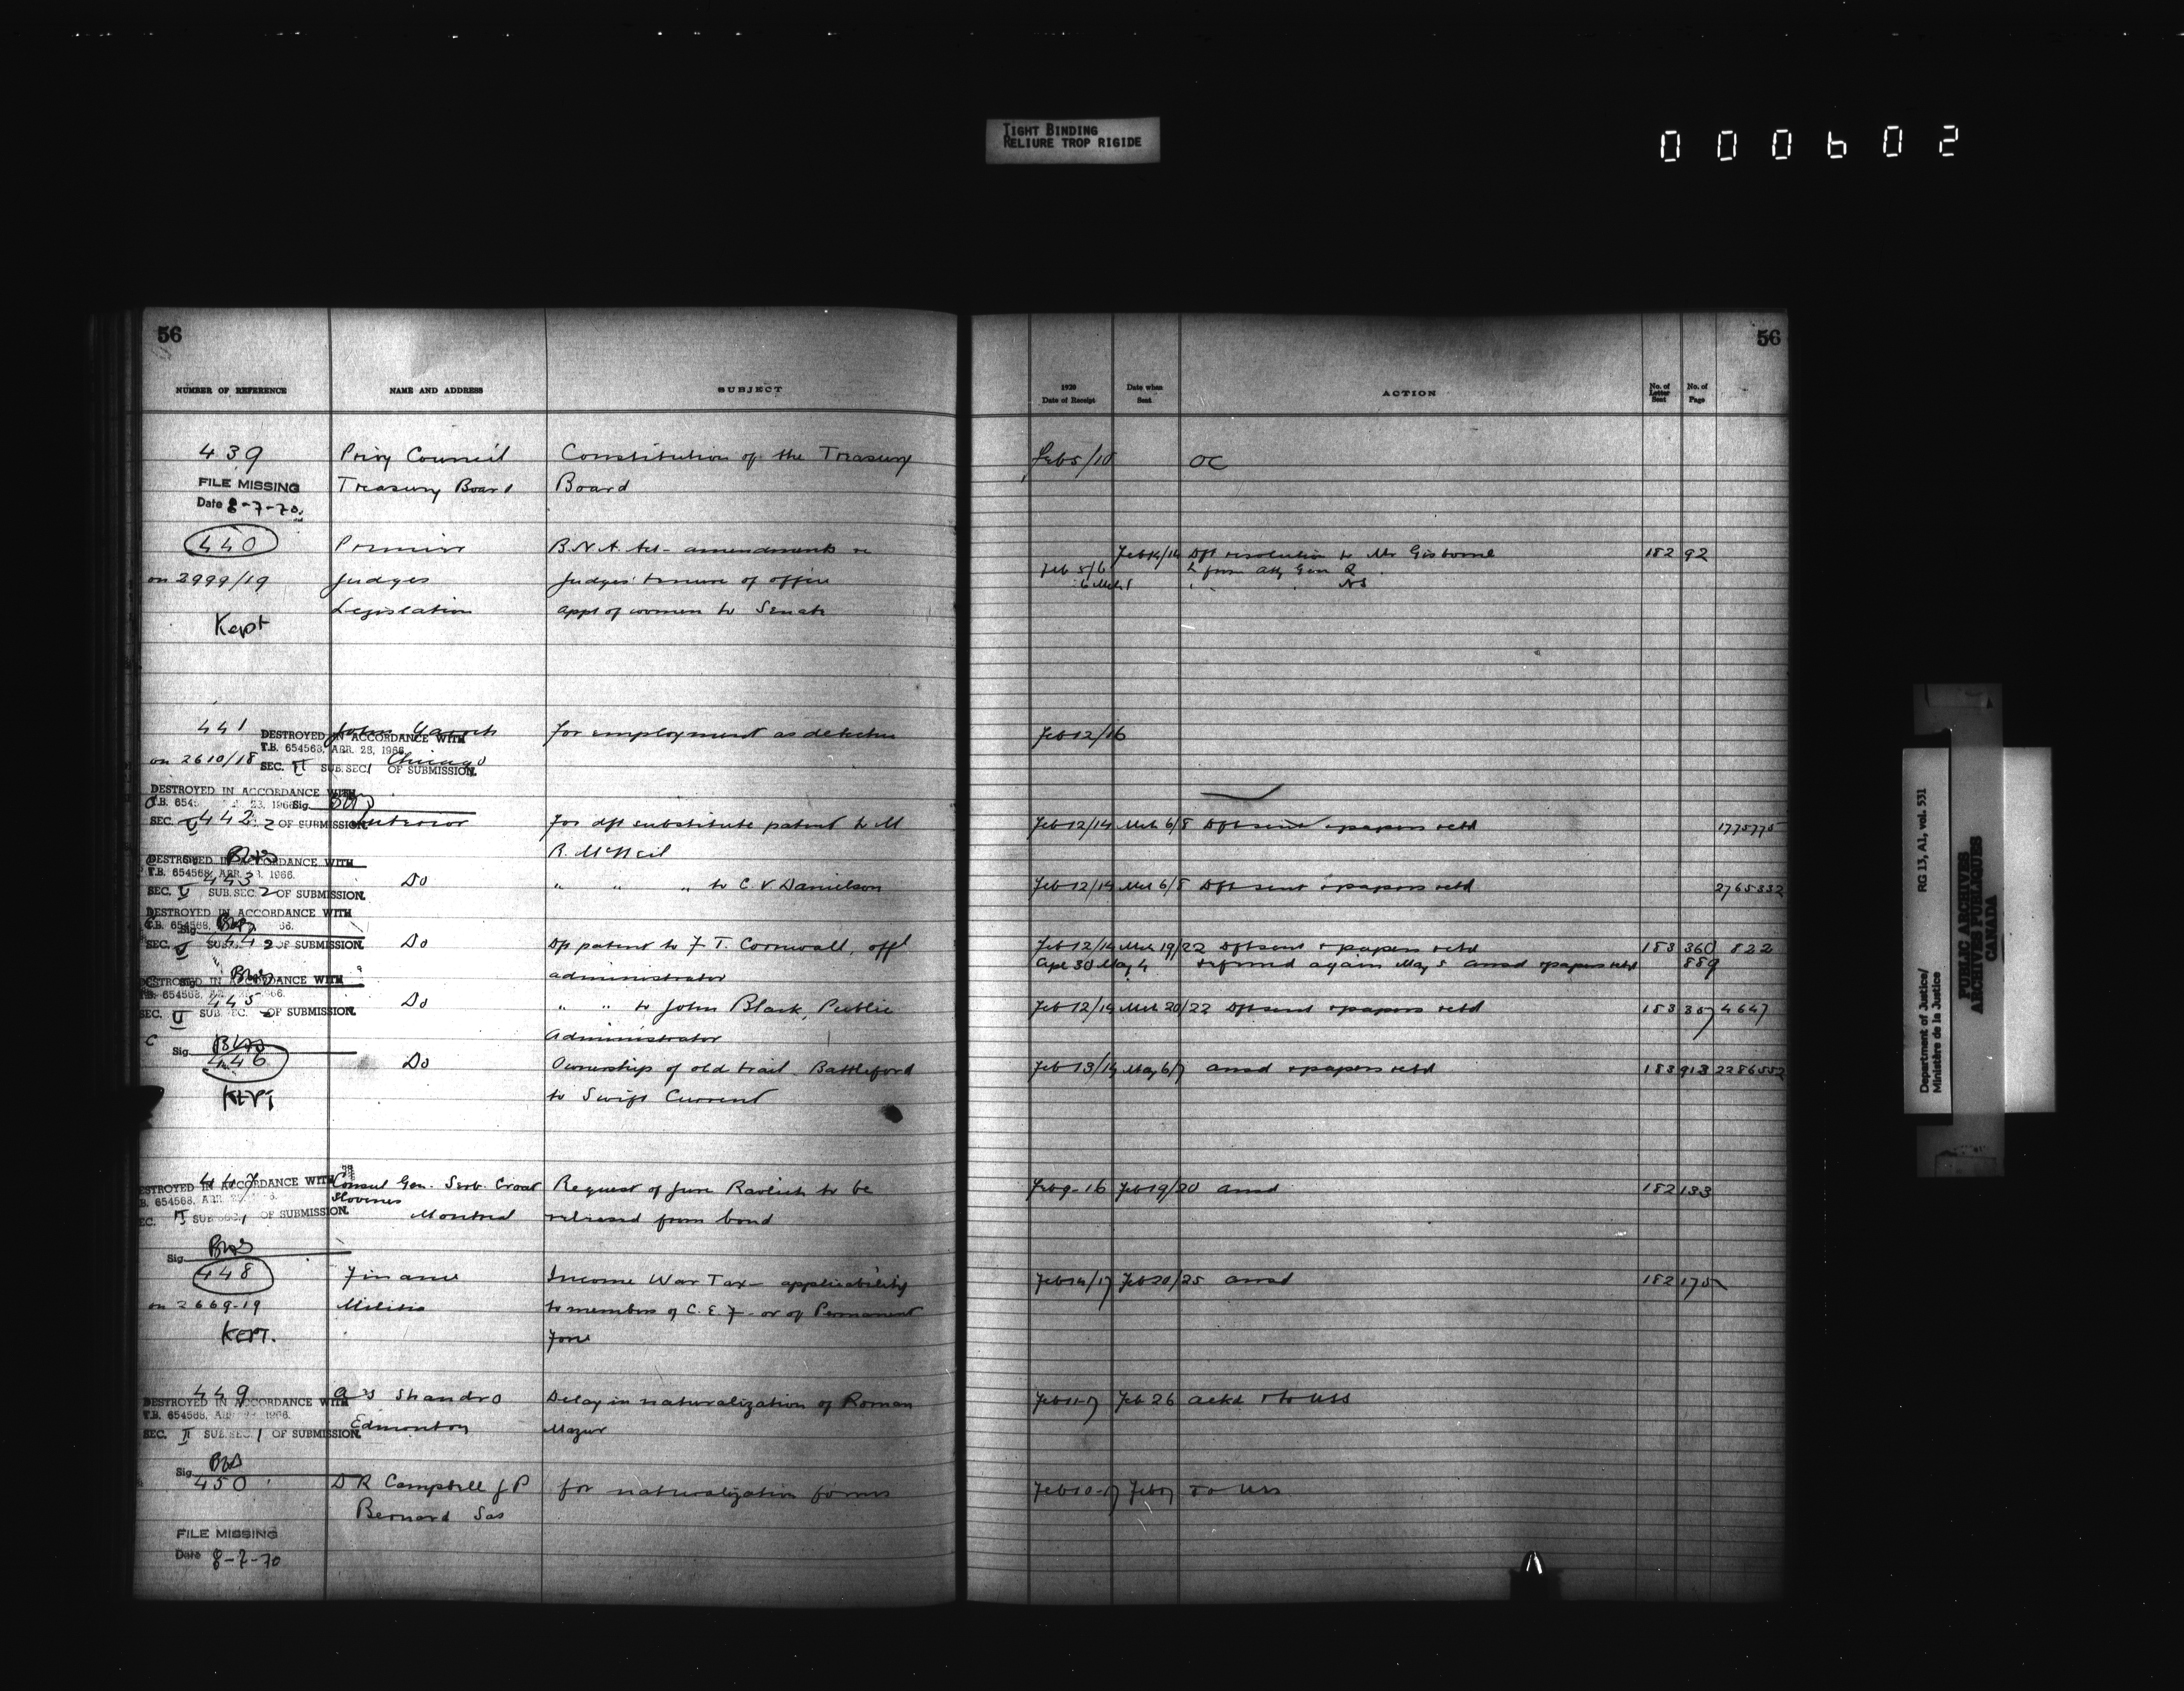 TIGHT BINDING
RELIURE TROP RIGIDE
000602
56
NUMBER OF REFERENCE NAME AND ADDRESS SUBJECT
439 Privy Council Constitution of the Treasury
FILE MISSING Treasury Board Board
Date 8-7-70
440 Premier B.N.A. Act - amendments re
on 2999/19 Judges Judges' tenure of office
Legislation appt of women to Senate
Kept
441 John for employment as detective
DESTROYED IN ACCORDANCE WITH
T.B. 654563, APR. 23, 1966
on 2610/18 Chicago
SEC. II SUB.SEC. 1 OF SUBMISSION.
DESTROYED IN ACCORDANCE WITH
T.B. 654 23, 1966 Sig.
442 Interior for dft substitute patent to M
SEC. V 2 OF SUBMISSION.
R. McNeil
DESTROYED IN ACCORDANCE WITH
T.B. 654568, APR. 1966.
443 Do " " " to C. V. Danielson
SEC. V SUB. SEC. 2 OF SUBMISSION.
DESTROYED IN ACCORDANCE WITH
T.B. 654568, 66.
Sig.
444 Do Dft patent to F. T. Cornwall, offl
SEC. V SUB. 2 OF SUBMISSION.
administrator
DESTROYED IN ACCORDANCE WITH
T.B. 654563, 1966.
445 Do " " to John Black, Public
SEC. V SUB. SEC. 2 OF SUBMISSION.
Administrator
Sig.
446 Do Ownership of old trail Battleford
KEPT to Swift Current
447 Consul Gen. Serb. Croat Request of Jure Ravlich to be
DESTROYED IN ACCORDANCE WITH
Slovenes
Montreal released from bond
SUB SEC. 1 OF SUBMISSION.
Sig.
448 Finance Income War Tax - applicability
on 2669-19 Militia to members of C.E.F. or of Permanent
KEPT. Force
449 A S Shandro Delay in naturalization of Roman
DESTROYED IN ACCORDANCE WITH
T.B. 654568, 1966.
Edmonton Mazur
SEC. II SUB. SEC. 1 OF SUBMISSION.
Sig.
450 D R Campbell J P for naturalization forms
Bernard Sas
FILE MISSING
Date 8-7-70
56
1920 Date of Receipt Date when Sent ACTION No. of Letter Sent No. of Page
Feb 5/10 OC
Feb 14/14 Dft resolution to Mr Gisborne 182 92
Feb 5/6 L from Atty Gen Q
6 Mch 1 " " NS
Feb 12/16
Feb 12/14 Mch 6/8 Dft sent + papers retd 1775775
Feb 12/14 Mch 6/8 Dft sent + papers retd 2765332
Feb 12/14 Mch 19/22 Dft sent + papers retd 183 360 822
Apl 30 May 4 referred again May 5 ansd + papers retd 889
Feb 12/14 Mch 20/22 Dft sent + papers retd 183 357 4647
Feb 13/14 May 6/7 ansd + papers retd 183 913 2286552
Feb 9-16 Feb 19/20 ansd 182 133
Feb 14/17 Feb 20/25 ansd 182 175
Feb 11-17 Feb 26 ackd + to USS
Feb 10-17 to USS
Department of Justice/ RG 13, A1, vol. 531
Ministère de la Justice
PUBLIC ARCHIVES
ARCHIVES PUBLIQUES
CANADA